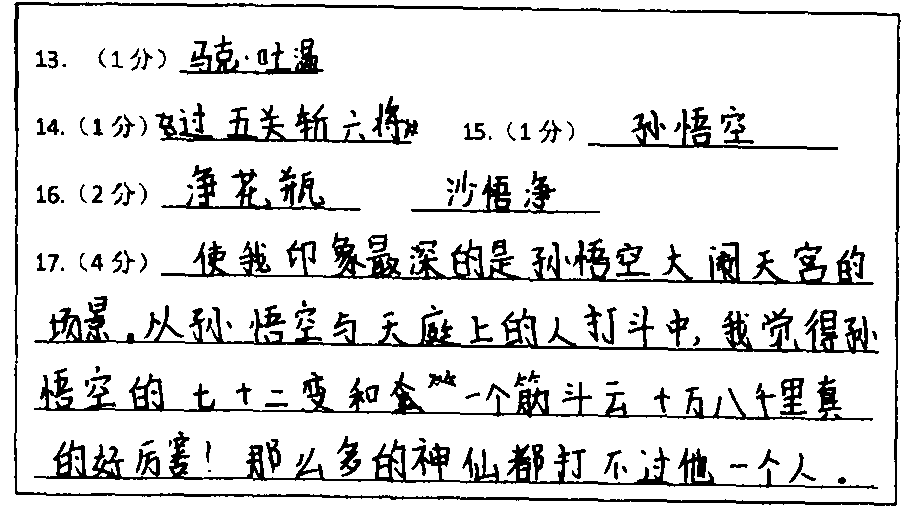 13. （1分）马克·吐温
14.（1分）过五关斩六将 15.（1分）孙悟空
16.（2分）净花瓶 沙悟净
17.（4分）使我印象最深的是孙悟空大闹天宫的
场景。从孙悟空与天庭上的人打斗中,我觉得孙
悟空的七十二变和一个筋斗云十万八千里真
的好厉害！那么多的神仙都打不过他一个人.